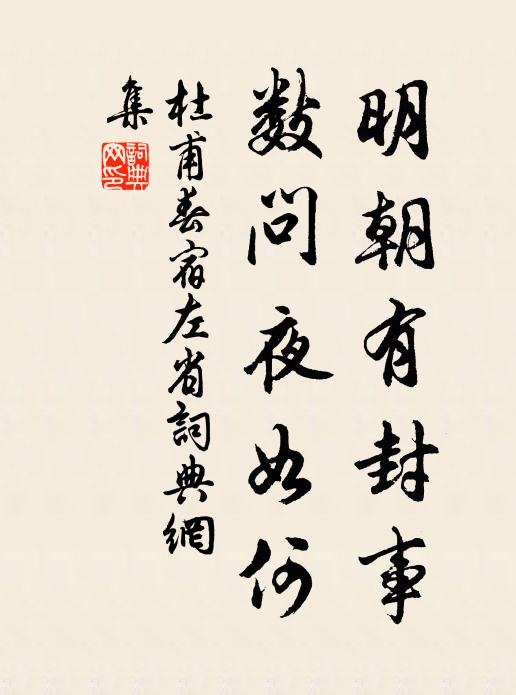 明朝有封事
數問夜如何
杜甫春宿左省詞典網
集
詞典網印